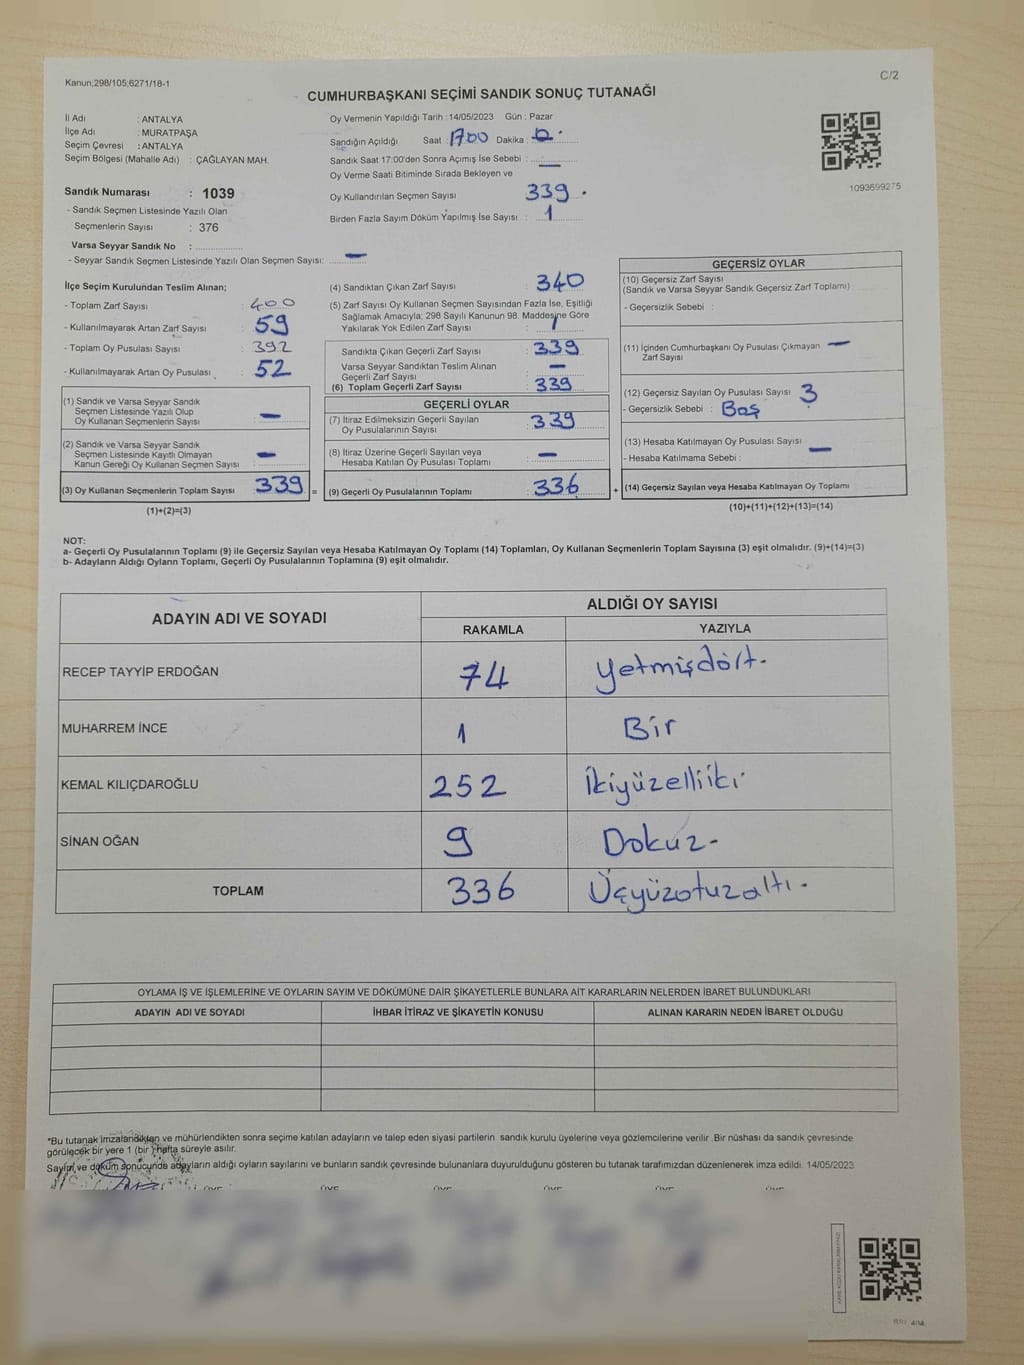 Kanun;298/105;6271/18-1
C/2
CUMHURBAŞKANI SEÇİMİ SANDIK SONUÇ TUTANAĞI
İl Adı : ANTALYA
İlçe Adı : MURATPAŞA
Seçim Çevresi : ANTALYA
Seçim Bölgesi (Mahalle Adı) : ÇAĞLAYAN MAH.
Sandık Numarası : 1039
- Sandık Seçmen Listesinde Yazılı Olan
Seçmenlerin Sayısı : 376
Varsa Seyyar Sandık No : ..............
- Seyyar Sandık Seçmen Listesinde Yazılı Olan Seçmen Sayısı: —
Oy Vermenin Yapıldığı Tarih :14/05/2023 Gün : Pazar
Sandığın Açıldığı Saat : 1700 Dakika : 0
Sandık Saat 17:00'den Sonra Açımış İse Sebebi : —
Oy Verme Saati Bitiminde Sırada Bekleyen ve
Oy Kullandırılan Seçmen Sayısı 339
Birden Fazla Sayım Döküm Yapılmış İse Sayısı : 1
1093699275
İlçe Seçim Kurulundan Teslim Alınan;
- Toplam Zarf Sayısı : 400
- Kullanılmayarak Artan Zarf Sayısı : 59
- Toplam Oy Pusulası Sayısı : 392
- Kullanılmayarak Artan Oy Pusulası : 52
(1) Sandık ve Varsa Seyyar Sandık
Seçmen Listesinde Yazılı Olup
Oy Kullanan Seçmenlerin Sayısı : —
(2) Sandık ve Varsa Seyyar Sandık
Seçmen Listesinde Kayıtlı Olmayan
Kanun Gereği Oy Kullanan Seçmen Sayısı : —
(3) Oy Kullanan Seçmenlerin Toplam Sayısı 339 =
(1)+(2)=(3)
(4) Sandıktan Çıkan Zarf Sayısı : 340
(5) Zarf Sayısı Oy Kullanan Seçmen Sayısından Fazla İse, Eşitliği
Sağlamak Amacıyla; 298 Sayılı Kanunun 98. Maddesine Göre
Yakılarak Yok Edilen Zarf Sayısı : 1
Sandıkta Çıkan Geçerli Zarf Sayısı : 339
Varsa Seyyar Sandıktan Teslim Alınan
Geçerli Zarf Sayısı : —
(6) Toplam Geçerli Zarf Sayısı : 339
GEÇERLİ OYLAR
(7) İtiraz Edilmeksizin Geçerli Sayılan
Oy Pusulalarının Sayısı : 339
(8) İtiraz Üzerine Geçerli Sayılan veya
Hesaba Katılan Oy Pusulası Toplamı : —
(9) Geçerli Oy Pusulalarının Toplamı : 336 +
GEÇERSİZ OYLAR
(10) Geçersiz Zarf Sayısı
(Sandık ve Varsa Seyyar Sandık Geçersiz Zarf Toplamı) :
- Geçersizlik Sebebi :
(11) İçinden Cumhurbaşkanı Oy Pusulası Çıkmayan —
Zarf Sayısı
(12) Geçersiz Sayılan Oy Pusulası Sayısı : 3
- Geçersizlik Sebebi : Boş
(13) Hesaba Katılmayan Oy Pusulası Sayısı : —
- Hesaba Katılmama Sebebi :
(14) Geçersiz Sayılan veya Hesaba Katılmayan Oy Toplamı
(10)+(11)+(12)+(13)=(14)
NOT:
a- Geçerli Oy Pusulalarının Toplamı (9) ile Geçersiz Sayılan veya Hesaba Katılmayan Oy Toplamı (14) Toplamları, Oy Kullanan Seçmenlerin Toplam Sayısına (3) eşit olmalıdır. (9)+(14)=(3)
b- Adayların Aldığı Oyların Toplamı, Geçerli Oy Pusulalarının Toplamına (9) eşit olmalıdır.
ADAYIN ADI VE SOYADI
ALDIĞI OY SAYISI
RAKAMLA YAZIYLA
RECEP TAYYİP ERDOĞAN 74 Yetmişdört.
MUHARREM İNCE 1 Bir
KEMAL KILIÇDAROĞLU 252 İkiyüzelliiki
SİNAN OĞAN 9 Dokuz-
TOPLAM 336 Üçyüzotuzaltı.
OYLAMA İŞ VE İŞLEMLERİNE VE OYLARIN SAYIM VE DÖKÜMÜNE DAİR ŞİKAYETLERLE BUNLARA AİT KARARLARIN NELERDEN İBARET BULUNDUKLARI
ADAYIN ADI VE SOYADI İHBAR İTİRAZ VE ŞİKAYETİN KONUSU ALINAN KARARIN NEDEN İBARET OLDUĞU
*Bu tutanak imzalandıktan ve mühürlendikten sonra seçime katılan adayların ve talep eden siyasi partilerin sandık kurulu üyelerine veya gözlemcilerine verilir .Bir nüshası da sandık çevresinde
görülecek bir yere 1 (bir ) hafta süreyle asılır.
Sayım ve döküm sonucunda adayların aldığı oyların sayılarını ve bunların sandık çevresinde bulunanlara duyurulduğunu gösteren bu tutanak tarafımızdan düzenlenerek imza edildi. 14/05/2023